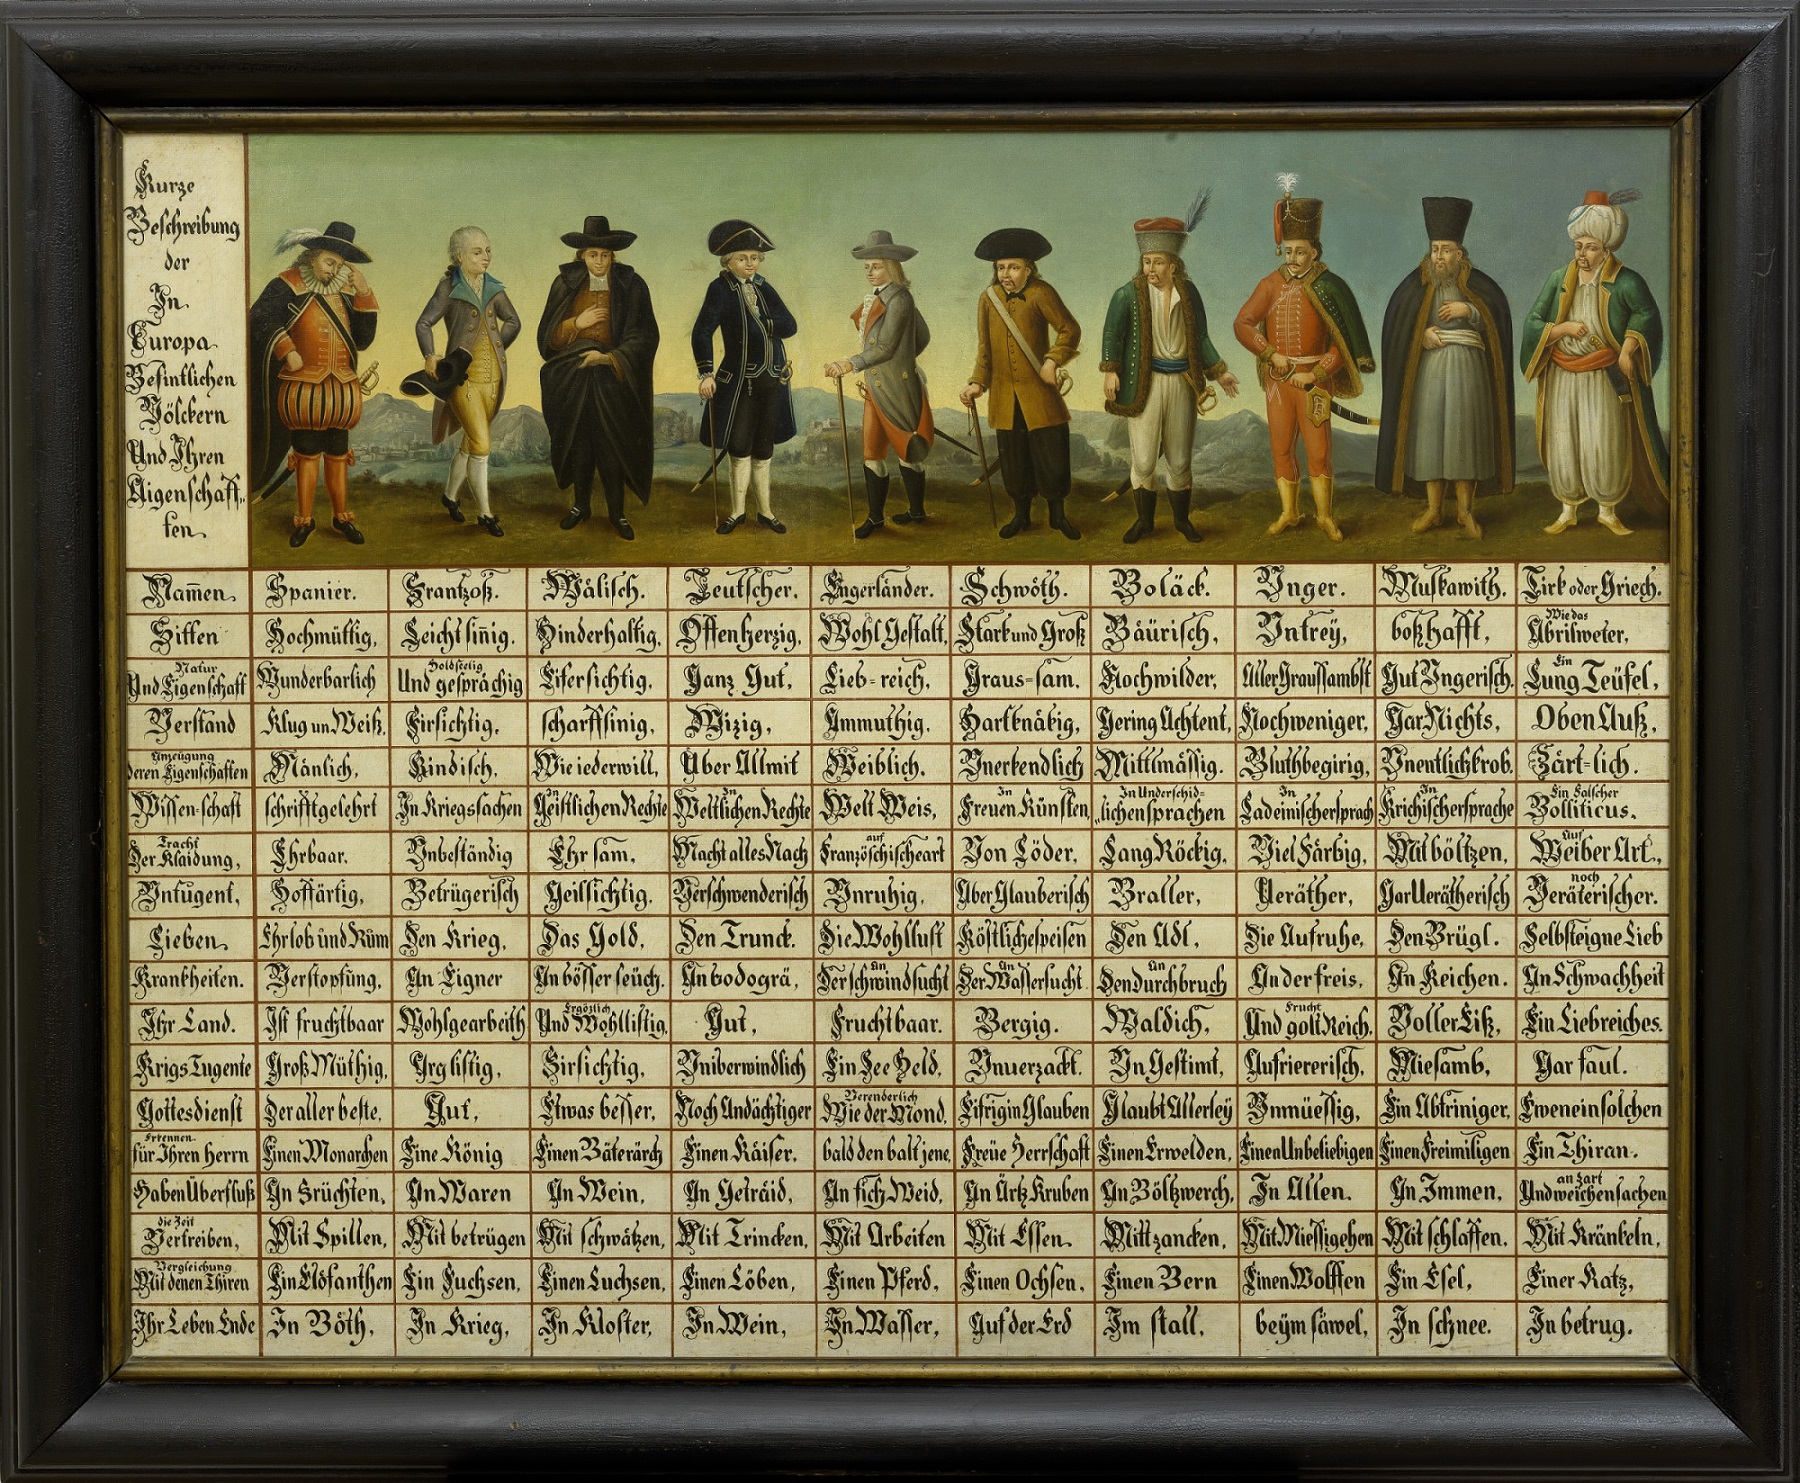 Kurze
Beschreibung
der
In
Europa
Befintlichen
Völckern
Und Ihren
Aigenschaff„
ten.
Nam̄en. Spanier. Frantzoß. Wälisch. Teutscher. Engerländer. Schwöth. Boläck. Vnger. Muskawith. Tirk oder Griech.
Sitten Hochmüttig, Leicht sin̄ig. Hinderhaltig, Offenherzig, Wohl Gestalt, Stark und Groß Bäurisch, Vntreÿ, boßhafft, Wie das Abrilweter,
Natur Und Eigenschaft Wunderbarlich Holdseelig Und gesprächig Eifersichtig, Ganz Gut, Lieb=reich, Graus=sam, Nochwilder, Aller Graussambst Gut Vngerisch. Ein Lung Teüfel,
Verstand Klug un Weiß, Firsichtig, scharffsinig, Wizig, Ammuthig, Hartknäkig, Gering Achtent, Nochweniger, Gar Nichts, Oben Auß,
Anzeügung deren Eigenschaften Mänlich, Kindisch, Wie iederwill, Über Allmit Weiblich, Vnerkendlich Mittlmässig. Bluthbegirig, Vnentlichkrob. Zärt=lich.
Wissen-schaft schrifftgelehrt In Kriegssachen In Geistlichen Rechte In Weltlichen Rechte Welt Weis, In Freuen Künsten, In Underschid=„lichen sprachen Ladeinischersprach In Krichischersprache Ein falscher Bolliticus.
Tracht Der Klaidung, Ehrbaar. Vnbeständig Ehrsam, Macht alles Nach auf Französchischeart Von Löder, Lang Röckig, Viel Färbig, Mit böltzen, Auf Weiber Art.,
Vntugent, Hoffärtig, Betrügerisch Geilsichtig, Verschwenderisch Vnruhig, Aber Glauberisch Braller, Veräther, Gar Verätherisch noch Veräterischer.
Lieben. Ehrlob und Rüm Den Krieg, Das Gold, Den Trunck. Die Wohllust Köstlichespeisen Den Adl, Die Aufruhe, Den Brügl. Selbsteigne Lieb
Krankheiten. Verstopfung, An Eigner An bösser seüch. An bodogrä, An Der schwindsucht An Der Wassersucht An Den durchbruch An der freis, An Keichen. An Schwachheit
Ihr Land. Ist fruchtbaar Wohlgearbeith Ergözlich Und Wohllistig, Gut, Fruchtbaar. Bergig. Waldich, Frucht Und golt Reich, Voller Eiß, Ein Liebreiches.
Krigs Tugente Groß Müthig, Arglistig, Firsichtig, Vniberwindlich Ein See Held, Vnuerzackt. Vn Gestimt, Aufriererisch, Miesamb, Gar faul.
Gottesdienst Der aller beste, Gut, Etwas besser, Noch Andächtiger Verenderlich Wie der Mond, Eifrig in Glauben Glaubt Allerleÿ Vnmüessig, Ein Abtriniger, Eweneinsolchen
Erkennen für Ihren herrn Einen Monarchen Eine König Einen Bäterärch Einen Käiser, bald den balt jene, Freüe Herrschaft Einen Erwelden, Einen Unbeliebigen Einen Freimiligen Ein Thiran.
Haben Überfluß An Früchten, An Waren An Wein, An Geträid, An fich Weid, An Ärtz Kruben An Böltzwerch, In Allen. An Immen, an zart Und weichen sachen
die Zeit Vertreiben, Mit Spillen, Mit betrügen Mit schwätzen, Mit Trincken, Mit Arbeiten Mit Essen. Mitt zancken, Mit Miessigehen Mit schlaffen, Mit Kränkeln,
Vergleichung Mit denen Thiren Ein Elöfanthen Ein Fuchsen, Einen Luchsen, Einen Löben, Einen Pferd, Einen Ochsen, Einen Bern Einen Wolffen Ein Esel, Einer Katz,
Ihr Leben Ende In Böth, In Krieg, In Kloster, In Wein, In Wasser, Auf der Erd Im stall, beÿm säwel, In schnee. In betrug.